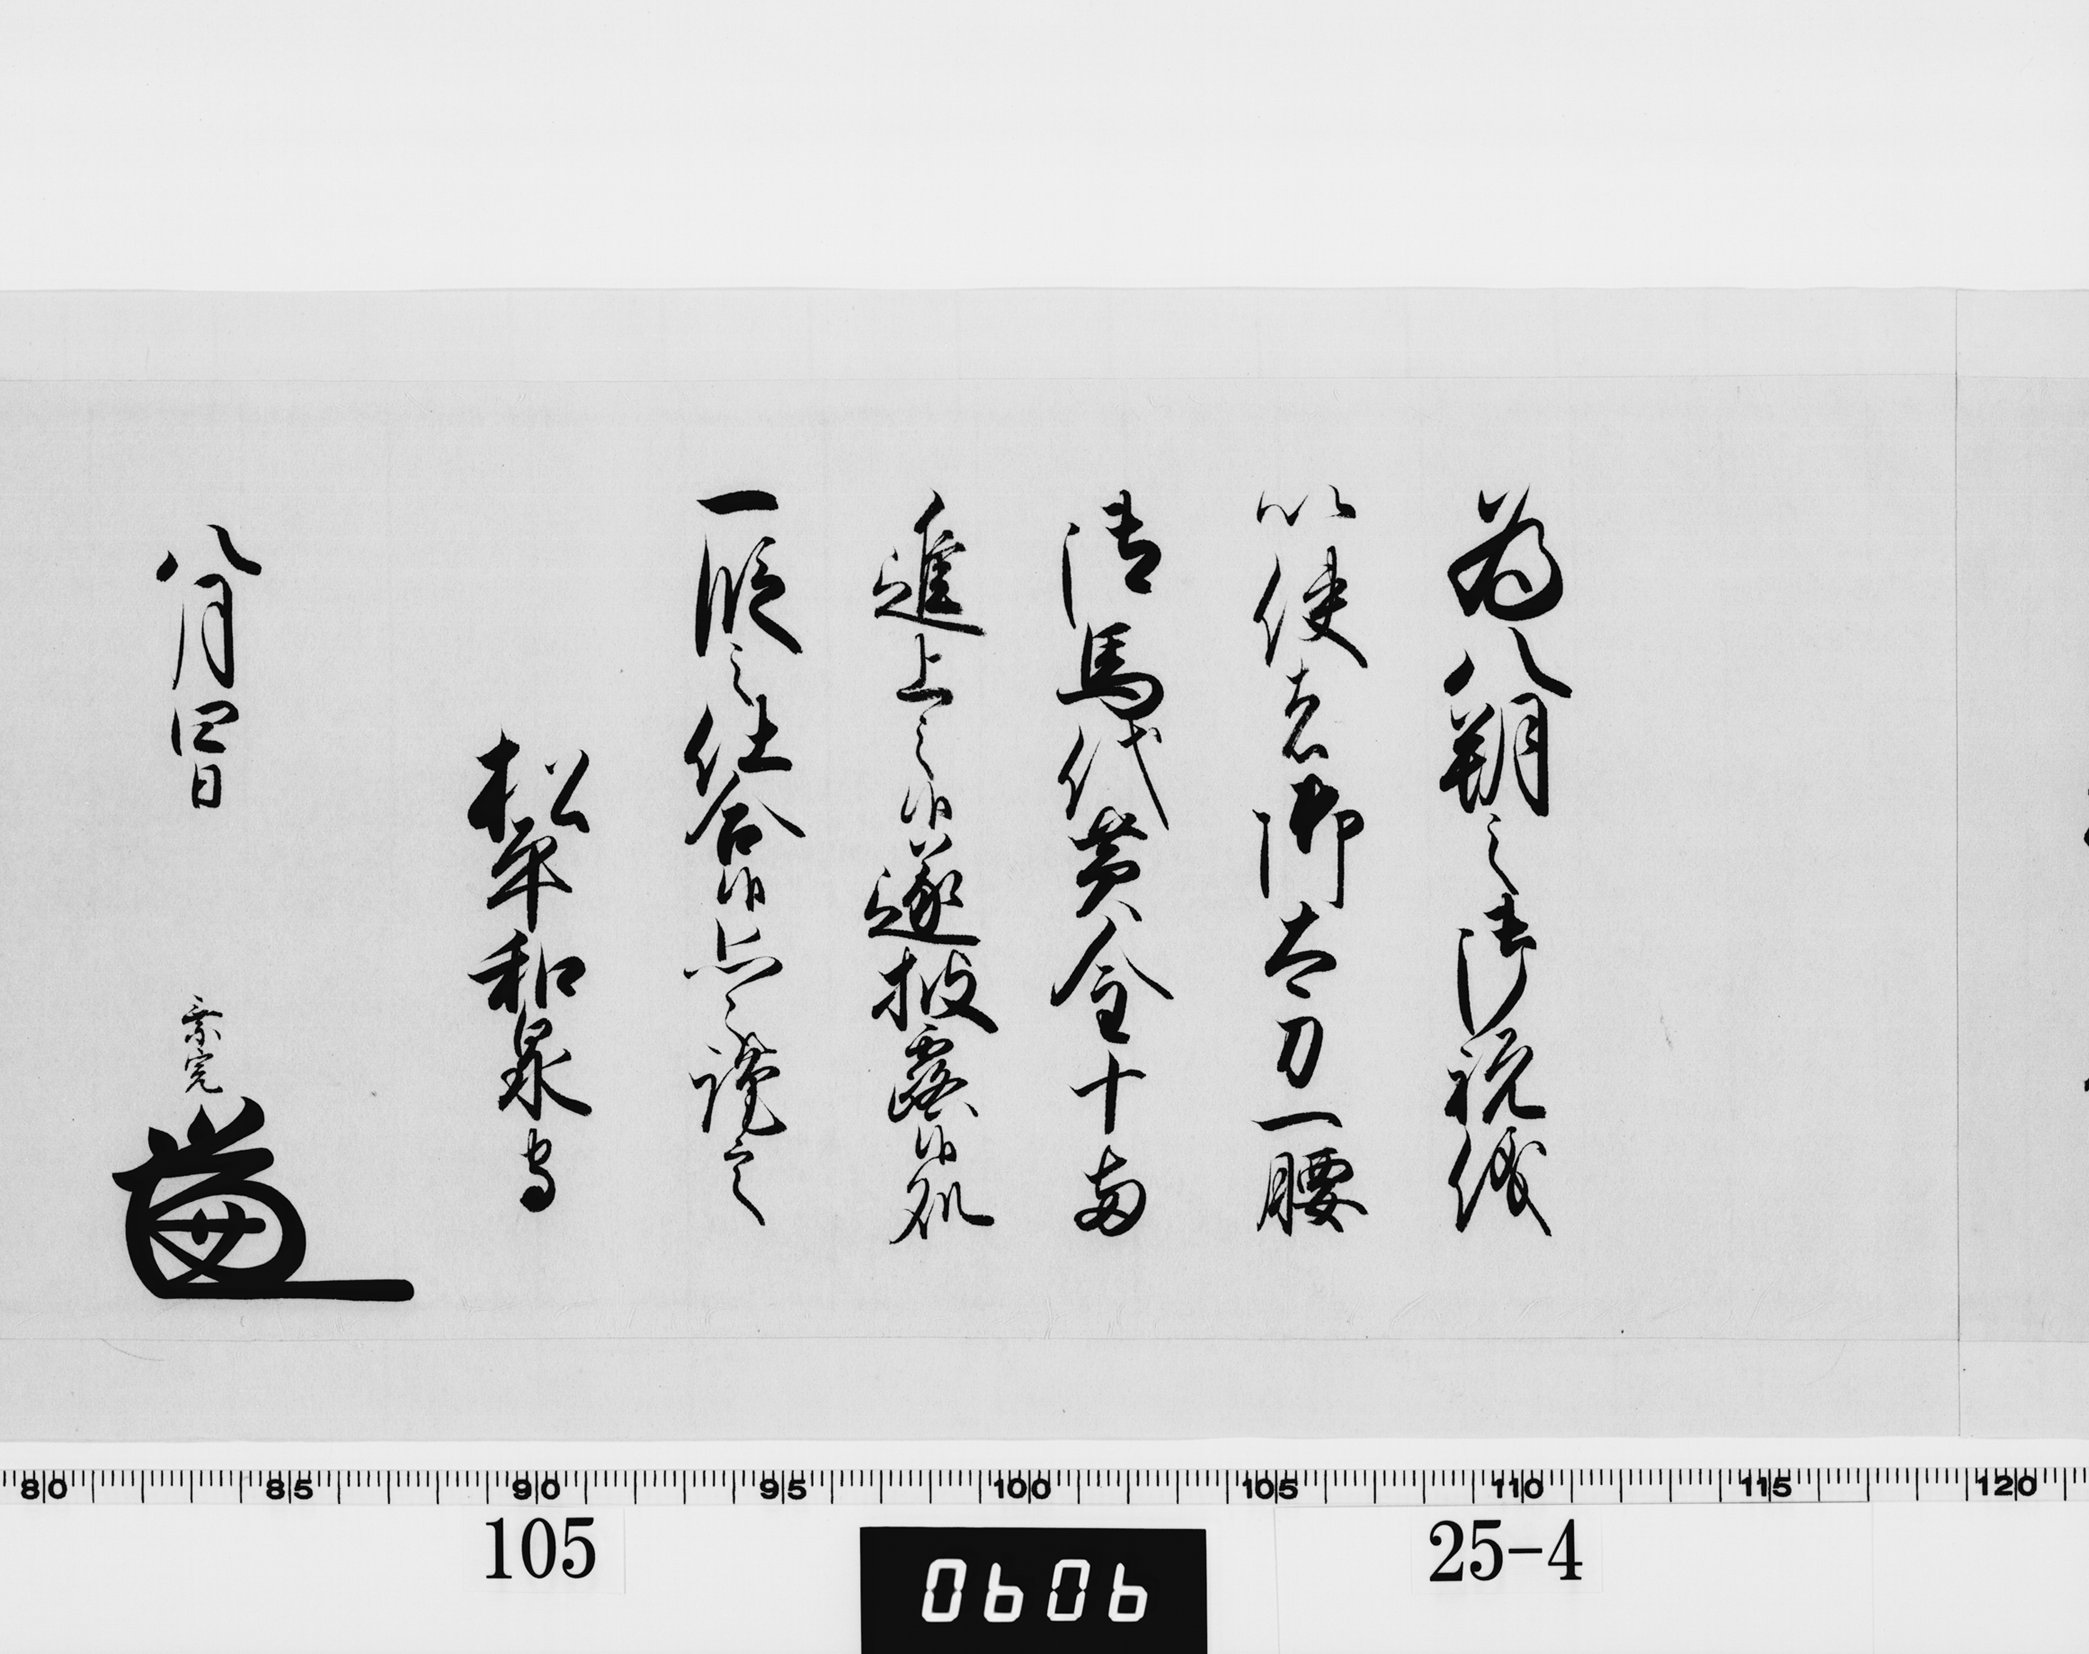 為八朔之御祝儀
以使者御太刀一腰
御馬代黄金十両
進上之候遂披露候処
一段之仕合候恐々謹言
松平和泉守
八月四日
乗完
80 85 90 95 100 105 110 115 120
105
0606
25-4